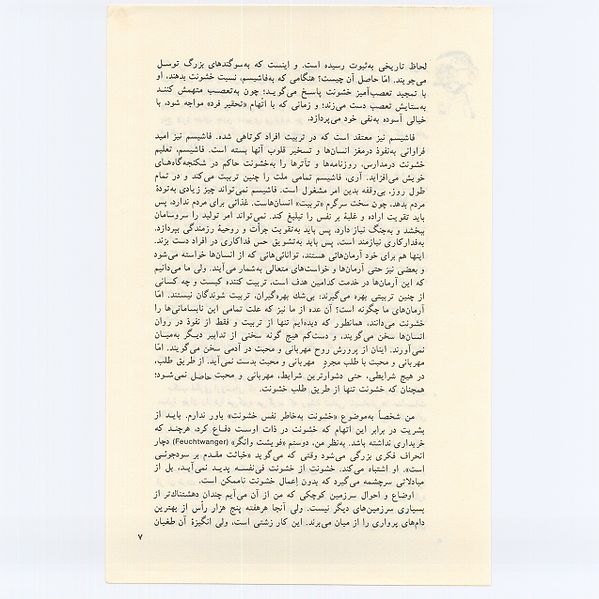 لحاظ تاریخی به‌ثبوت رسیده است. و اینست که به‌سوگندهای بزرگ توسل
می‌جویند. امّا حاصل آن چیست؟ هنگامی که به‌فاشیسم، نسبت خشونت بدهند، او
با تمجید تعصب‌آمیز خشونت پاسخ می‌گوید؛ چون به‌تعصب متهمش کنند
به‌ستایش تعصب دست می‌زند؛ و زمانی که با اتهام «تحقیر فرد» مواجه شود، با
خیالی آسوده به‌نفی خود می‌پردازد.
فاشیسم نیز معتقد است که در تربیت افراد کوتاهی شده. فاشیسم نیز امید
فراوانی به‌نفوذ درمغز انسان‌ها و تسخیر قلوب آنها بسته است. فاشیسم، تعلیم
خشونت درمدارس، روزنامه‌ها و تآترها را به‌خشونت حاکم در شکنجه‌گاه‌های
خویش می‌افزاید. آری، فاشیسم تمامی ملت را چنین تربیت می‌کند و در تمام
طول روز، بی‌وقفه بدین امر مشغول است. فاشیسم نمی‌تواند چیز زیادی به‌تودهٔ
مردم بدهد، چون سخت سرگرم «تربیت» انسان‌هاست. غذائی برای مردم ندارد، پس
باید تقویت اراده و غلبهٔ بر نفس را تبلیغ کند. نمی‌تواند امر تولید را سروسامان
ببخشد و به‌جنگ نیاز دارد، پس باید به‌تقویت جرأت و روحیهٔ رزمندگی بپردازد.
به‌فداکاری نیازمند است، پس باید به‌تشویق حس فداکاری در افراد دست بزند.
اینها هم برای خود آرمان‌هائی هستند، توانائی‌هائی که از انسان‌ها خواسته می‌شود
و بعضی نیز حتی آرمان‌ها و خواست‌های متعالی به‌شمار می‌آیند. ولی ما می‌دانیم
که این آرمان‌ها در خدمت کدامین هدف است، تربیت کننده کیست و چه کسانی
از چنین تربیتی بهره می‌گیرند؛ بی‌شك بهره‌گیران، تربیت شوندگان نیستند. امّا
آرمان‌های ما چگونه است؟ آن عده از ما نیز که علت تمامی این نابسامانی‌ها را
خشونت می‌دانند، همانطور که دیده‌ایم تنها از تربیت و فقط از نفوذ در روان
انسان‌ها سخن می‌گویند، و دست‌کم هیچ گونه سخنی از تدابیر دیگر به‌میان
نمی‌آورند. اینان از پرورش روح مهربانی و محبت در آدمی سخن می‌گویند. امّا
مهربانی و محبت با طلب مجردِ مهربانی و محبت بدست نمی‌آید. از طریق طلب،
در هیچ شرایطی، حتی دشوارترین شرایط، مهربانی و محبت حاصل نمی‌شود؛
همچنان که خشونت تنها از طریق طلب خشونت.
من شخصاً به‌موضوع «خشونت به‌خاطر نفس خشونت» باور ندارم. باید از
بشریت در برابر این اتهام که خشونت در ذات اوست دفاع کرد، هرچند که
خریداری نداشته باشد. به‌نظر من، دوستم «فویشت وانگر» (Feuchtwanger) دچار
انحراف فکری بزرگی می‌شود وقتی که می‌گوید «خباثت مقدم بر سودجوئی
است». او اشتباه می‌کند. خشونت از خشونت فی‌نفسه پدید نمی‌آید، بل از
مبادلاتی سرچشمه می‌گیرد که بدون اِعمال خشونت ناممکن است.
اوضاع و احوال سرزمین کوچکی که من از آن می‌آیم چندان دهشتناك‌تر از
بسیاری سرزمین‌های دیگر نیست. ولی آنجا هرهفته پنج هزار رأس از بهترین
دام‌های پرواری را از میان می‌برند. این کار زشتی است، ولی انگیزهٔ آن طغیان
۷